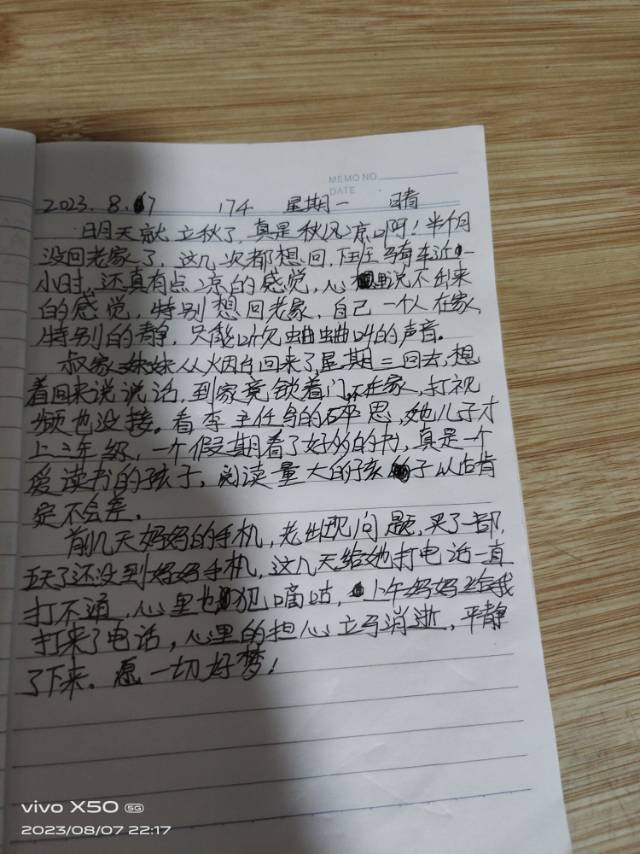 MEMO NO.
DATE
2023.8.7 174 星期一 晴
明天就立秋了，真是秋风凉啊！半个月
没回老家了，这几次都想回，在庄骑车近一
小时，还真有点凉的感觉，心里说不出来
的感觉，特别想回老家，自己一个人在家，
特别的静，只能听见蛐蛐叫的声音。
叔家妹妹从烟台回来了，星期三回去，想
着回来说说话，到家竟锁着门，不在家，打视
频也没接。看李主任写的碎思，她儿子才
上三年级，一个假期看了好多的书，真是一个
爱读书的孩子，阅读量大的孩子以后肯
定不会差。
前几天妈妈的手机，老出现问题，买了一部，
五天了还没到妈妈手机，这几天给她打电话一直
打不通，心里也犯嘀咕，上午妈妈给我
打来了电话，心里的担心立马消逝，平静
了下来。愿一切好梦！
vivo X50 5G
2023/08/07 22:17